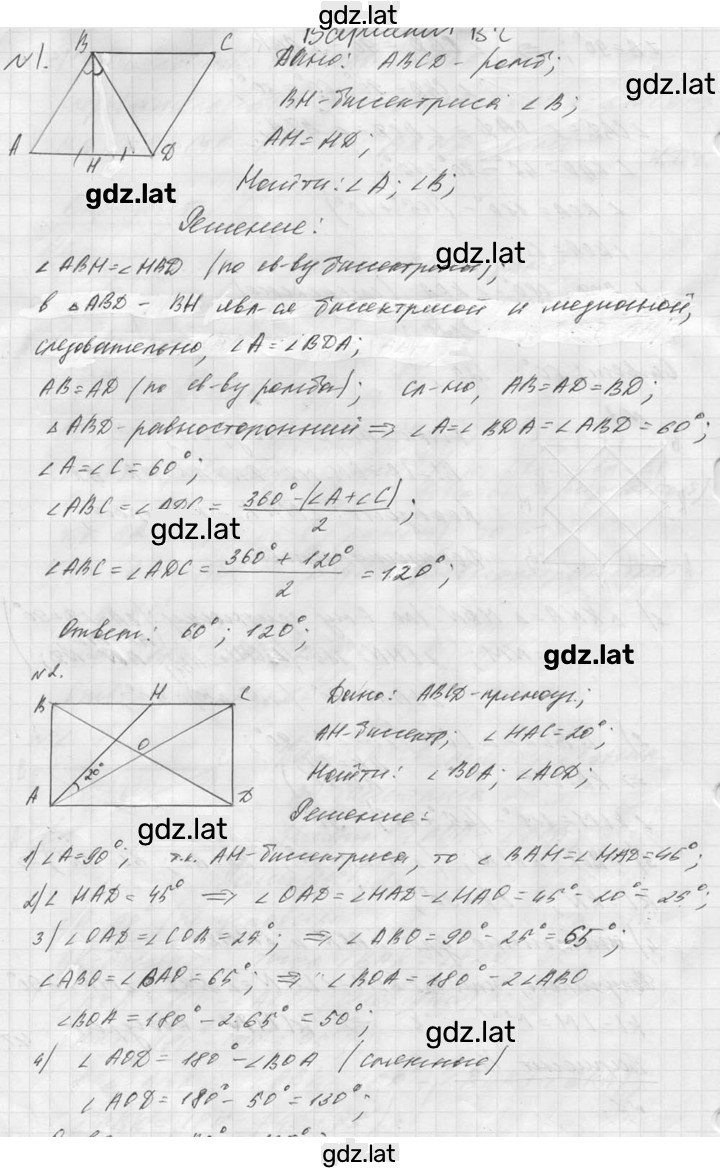 gdz.lat
Вариант В2
№1.
Дано: ABCD - ромб;
gdz.lat
BH - биссектриса ∠B;
AH = HD;
Найти: ∠A; ∠B;
B
C
A
H
D
gdz.lat
Решение:
gdz.lat
∠ABH = ∠HBD (по св-ву биссектрисы);
в △ABD - BH явл-ся биссектрисой и медианой,
следовательно, ∠A = ∠BDA;
AB = AD (по св-ву ромба); сл-но, AB = AD = BD;
△ABD - равносторонний ⇒ ∠A = ∠BDA = ∠ABD = 60°;
∠A = ∠C = 60°;
∠ABC = ∠ADC = 360° - (∠A + ∠C) / 2 ;
gdz.lat
∠ABC = ∠ADC = 360° + 120° / 2 = 120°;
Ответ: 60°; 120°;
gdz.lat
№2.
Дано: ABCD - прямоуг;
AH - биссектр; ∠HAC = 20°;
Найти: ∠BOA; ∠AOD;
B
H
C
O
20°
A
D
Решение:
gdz.lat
1) ∠A = 90°; т.к. AH - биссектриса, то ∠BAH = ∠HAD = 45°
2) ∠HAD = 45° ⇒ ∠OAD = ∠HAD - ∠HAO = 45° - 20° = 25°;
3) ∠OAD = ∠COB = 25°; ⇒ ∠ABO = 90° - 25° = 65°;
∠ABO = ∠BAO = 65°; ⇒ ∠BOA = 180° - 2∠ABO
∠BOA = 180° - 2·65° = 50°;
gdz.lat
4) ∠AOD = 180° - ∠BOA (смежные)
∠AOD = 180° - 50° = 130°;
gdz.lat